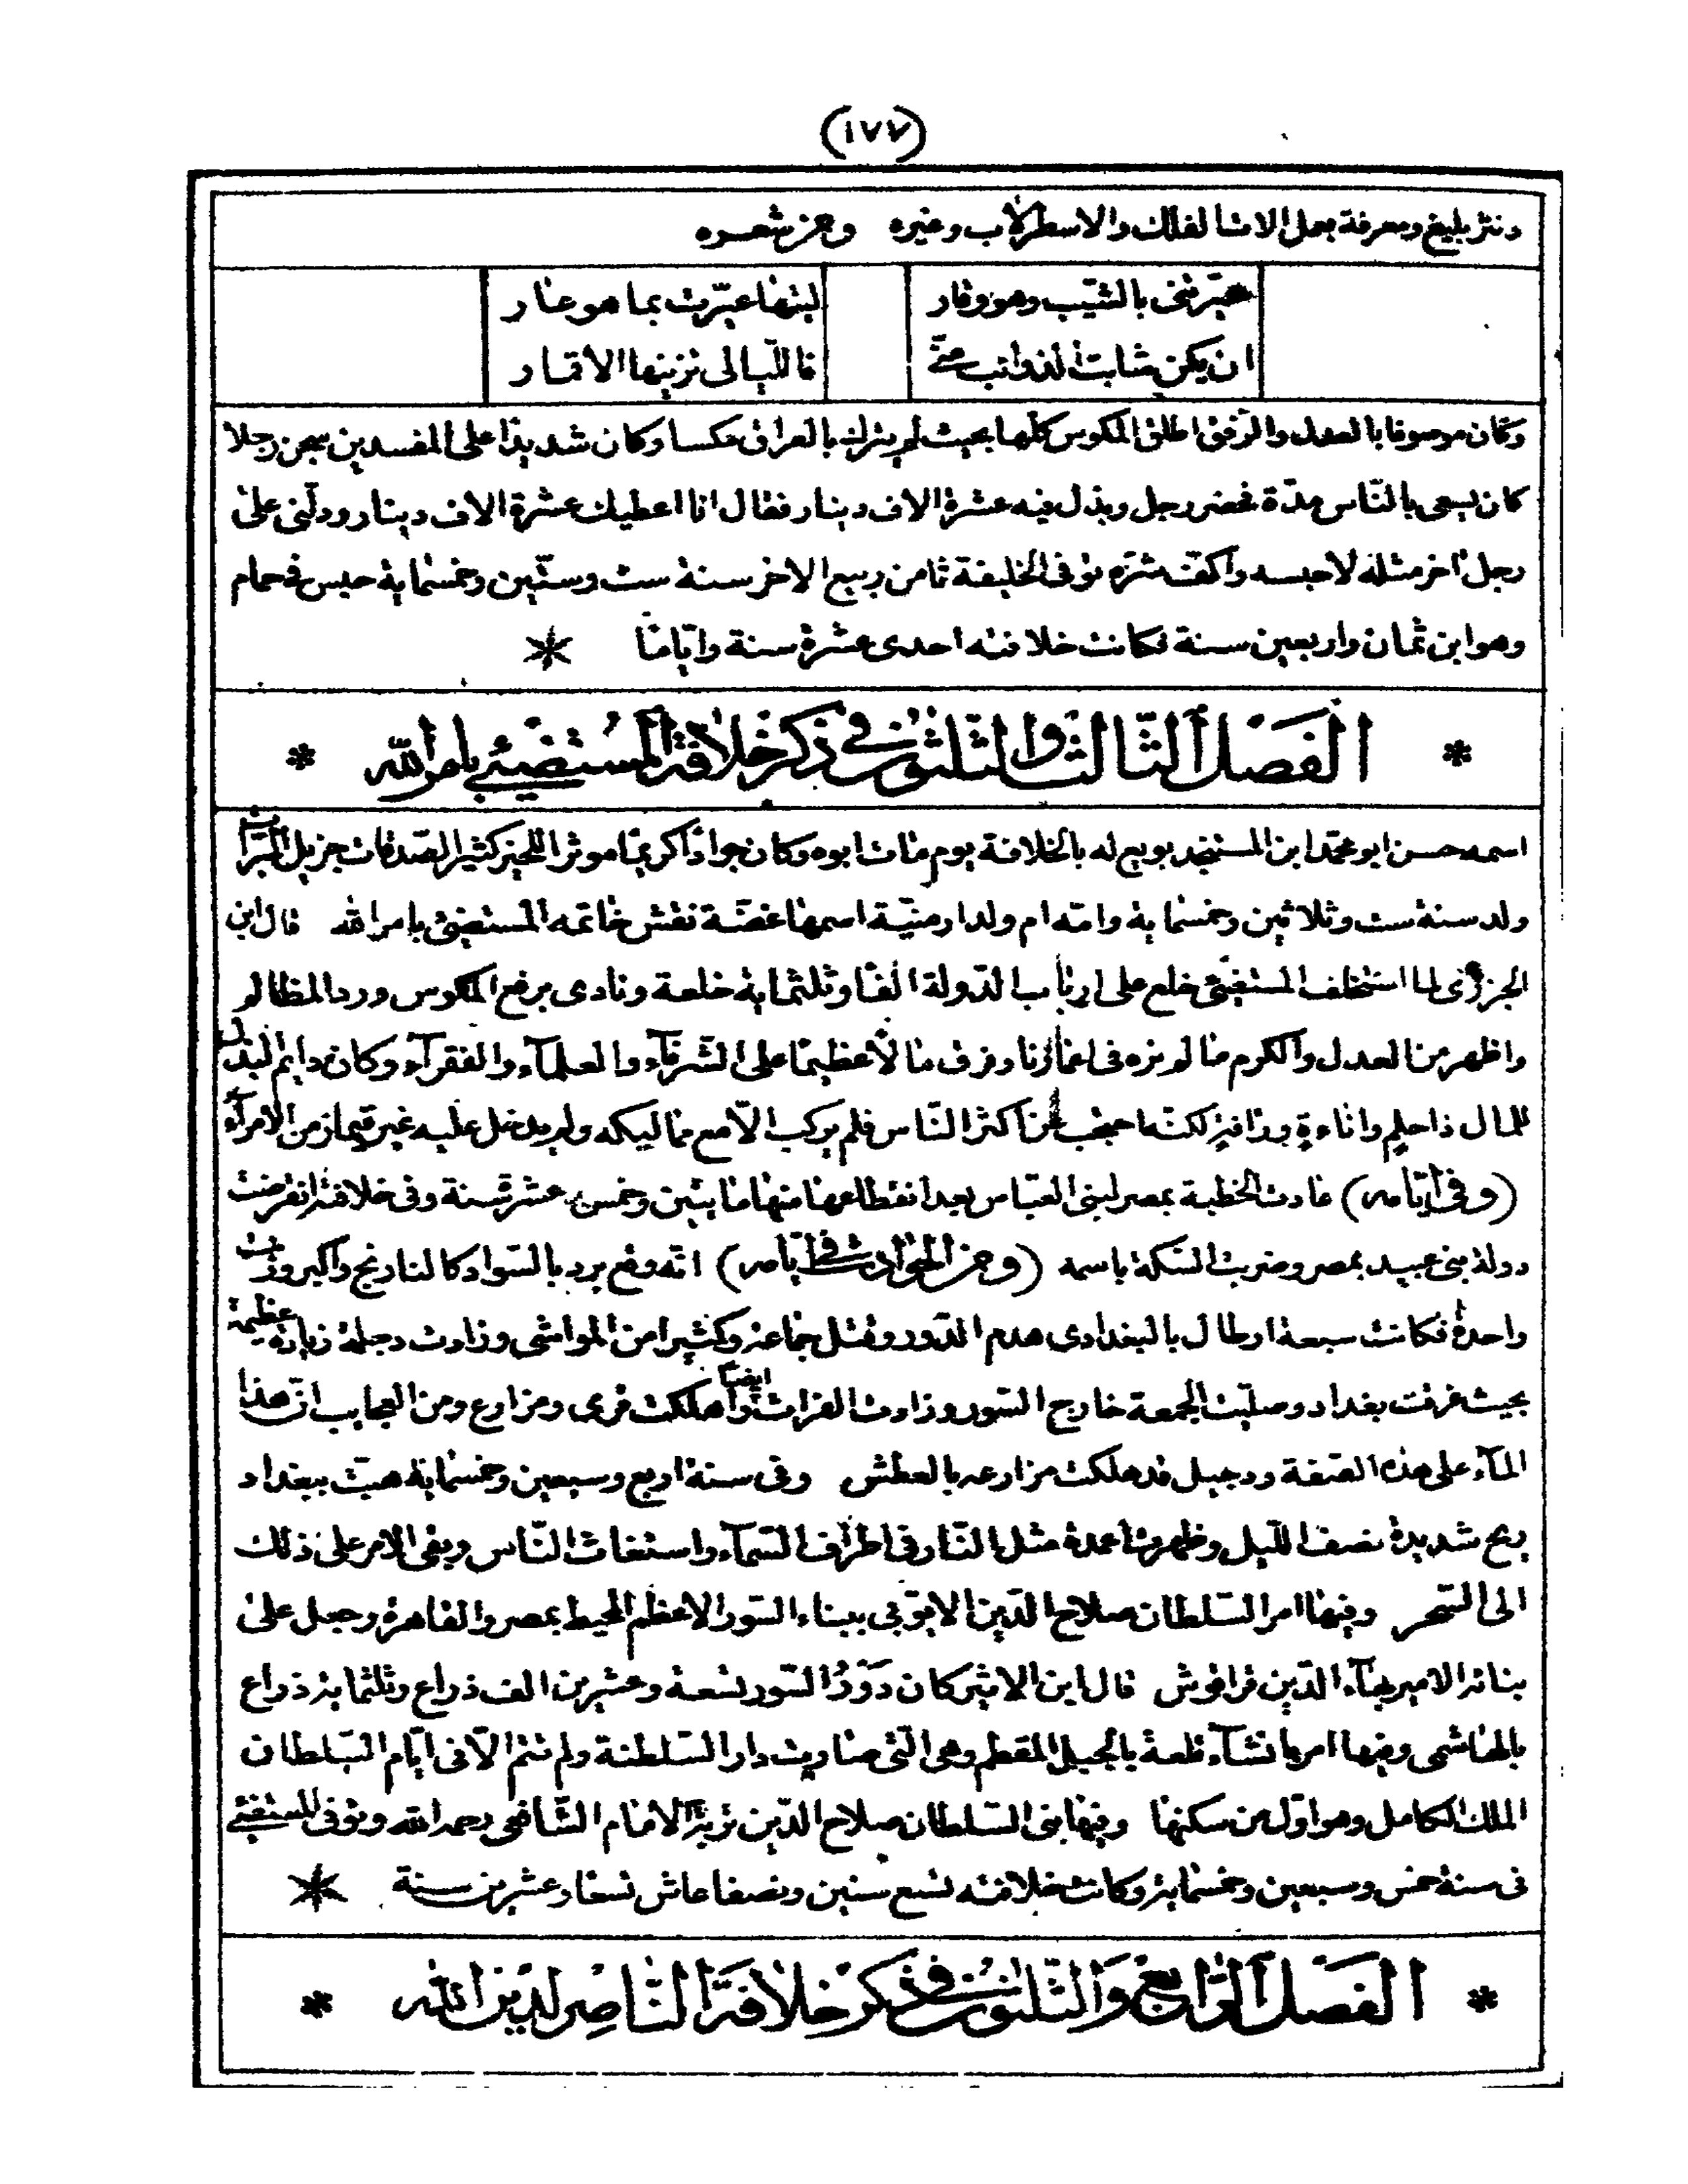 (١٧٧)
ونثر بليغ ومعرفة بعمل الات الفلك والاسطرلاب وغيره ومن شعره
عيرتنى بالشيب وهو وقار ليتها عيرت بما هو عار
ان يكن شابت الذوائب منى فالليالى تزينها الاقمار
وكان موصوفا بالعدل والرفق اطلق المكوس كلها بحيث لم يترك بالعراق مكسا وكان شديدا على المفسدين سجن رجلا
كان يسعى بالناس مدة فحضر رجل وبذل فيه عشرة الاف دينار فقال انا اعطيك عشرة الاف دينار ودلنى على
رجل اخر مثله لاحبسه واكف شره توفى الخليفة ثامن ربيع الاخر سنة ست وستين وخمسماية حبس فى حمام
وهو ابن ثمان واربعين سنة فكانت خلافته احدى عشرة سنة واياما *
* الفصل الثالث والثلثون فى ذكر خلافة المستضيئ بامر الله *
اسمه حسن ابو محمد ابن المستنجد بويع له بالخلافة يوم مات ابوه وكان جوادا كريما موثرا للخير كثير الصدقات جزيل المبرات
ولد سنة ست وثلاثين وخمسماية وامه ام ولد ارمنية اسمها غضة نقش خاتمه المستضيئ بامر الله قال ابن
الجوزى لما استخلف المستضيئ خلع على ارباب الدولة الفا وثلثماية خلعة ونادى برفع المكوس ورد المظالم
واظهر من العدل والكرم ما لم نره فى اعمارنا وفرق مالا عظيما على الشرفآء والعلمآء والفقرآء وكان دايم البذل
للمال ذا حلم واناءة ورافة لكنه احتجب عن اكثر الناس فلم يركب الا مع مماليكه ولم يدخل عليه غير قيماز من الامرآء
(وفى ايامه) عادت الخطبة بمصر لبنى العباس بعد انقطاعها منها مايتين وخمس عشرة سنة وفى خلافته انقرضت
دولة بنى عبيد بمصر وضربت السكة باسمه (ومن الحوادث فى ايامه) انه وقع برد بالسواد كالنارنج واكبر وزنت
واحدة فكانت سبعة ارطال بالبغدادى هدم الدور وقتل جماعة وكثيرا من المواشى وزادت دجلة زيادة عظيمة
بحيث غرقت بغداد وصليت الجمعة خارج السور وزادت الفرات ايضا واهلكت قرى ومزارع ومن العجايب ان هذا
المآء على هذه الصفة ودجيل قد هلكت مزارعه بالعطش وفى سنة اربع وسبعين وخمسماية هبت ببغداد
ريح شديدة نصف الليل وظهرت اعمدة مثل النار فى اطراف السمآء واستغاث الناس وبقى الامر على ذلك
الى السحر وفيها امر السلطان صلاح الدين الايوبى ببناء السور الاعظم المحيط بمصر والقاهرة وجعل على
بنائه الامير بهآء الدين قراقوش قال ابن الاثير كان دور السور تسعة وعشرين الف ذراع وثلثماية ذراع
بالهاشمى وفيها امر بانشآء قلعة بالجبل المقطم وهى التى صارت دار السلطنة ولم تتم الا فى ايام السلطان
الملك الكامل وهو اول من سكنها وفيها بنى السلطان صلاح الدين تربة الامام الشافعى رحمه الله وتوفى المستضيئ
فى سنة خمس وسبعين وخمسماية وكانت خلافته تسع سنين ونصفا عاش تسعا وعشرين سنة *
* الفصل الرابع والثلثون فى ذكر خلافة الناصر لدين الله *